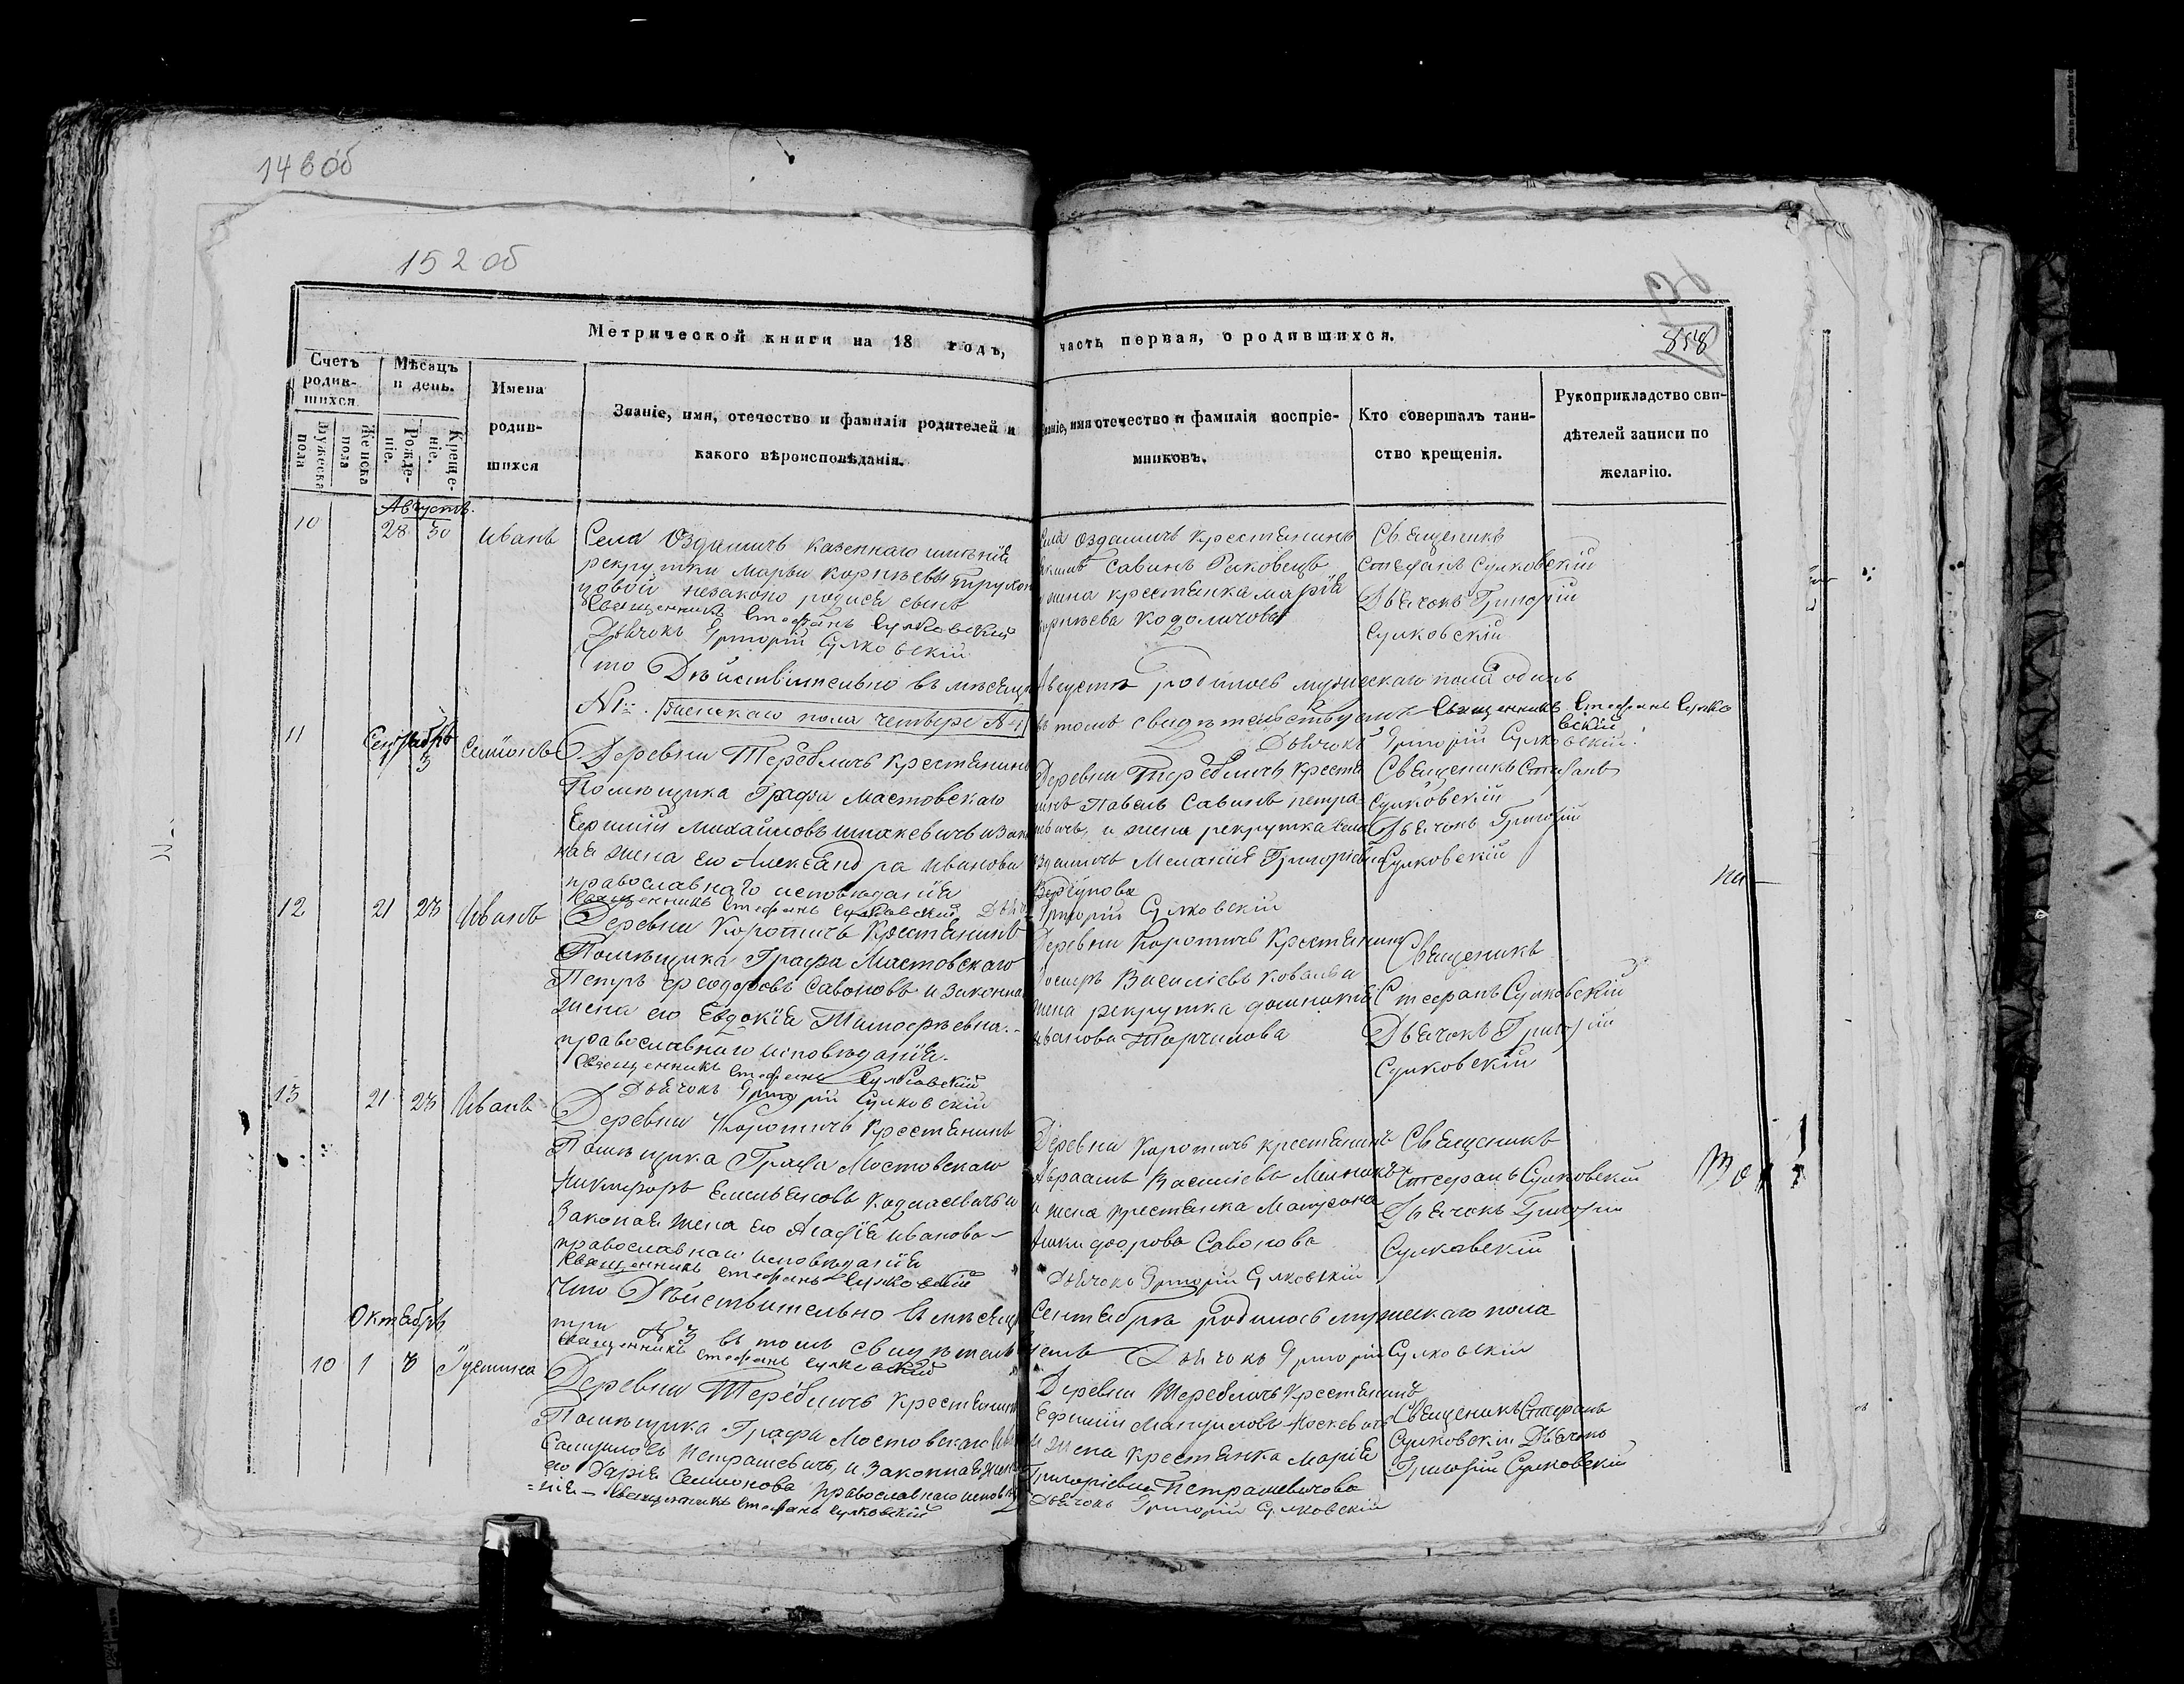 143 об
152 об
858
Метрической книги на 18 годъ, часть первая, о родившихся.
Счетъ родив-шихся.
Мужеска пола
Женска пола
Мѣсяцъ и день.
Рожде-ніе.
Креще-ніе.
Имена родив-шихся
Званіе, имя, отечество и фамилія родителей и какого вѣроисповѣданія.
Званіе, имя отечество и фамилія воспріе-мниковъ.
Кто совершалъ таин-ство крещенія.
Рукоприкладство сви-дѣтелей записи по желанію.
Августъ.
10 28 30 Иванъ
Села Оздамичъ казеннаго имѣнія
рекрутки Марьи Корнѣевы
незаконо родися сынъ
Священникъ Стефанъ Сулковский
Дьячокъ Григорій Сулковскій
Села Оздамичъ крестянинъ
Савинъ Раковецъ
жена крестянка Марія
Корнѣева Козоличова
Священикъ
Стефанъ Сулковскій
Дьячокъ Григорій
Сулковскій
Что Дѣйствительно въ мѣсяцѣ Августѣ родилось мужескаго пола одинъ
№ 1. женскаго пола четверо № 4 въ томъ свидѣтельствуемъ Священникъ Стефанъ Сулко
вский
Дьячокъ Григорій Сулковскій
Сентябрь
11 3 Симионъ
Деревни Теребличъ крестянинъ
Помѣщика Графа Мостовскаго
Ефимій Михайловъ
ная жена его Александра Иванова
православнаго исповѣданія
Священникъ Стефанъ Сулковский
Деревни Теребличъ крестя
нинъ Павелъ Савинъ петра
шевичъ, и жена рекрутка села
Оздамичъ Меланія Григоріева
Григорій Сулковскій
Священикъ Стефанъ
Сулковскій
Дьячокъ Григорій
Сулковскій
12 21 23 Иванъ
Деревни Коротичъ Крестянинъ
Помѣщика Графа Мостовскаго
Петръ Феодоровъ Савоновъ и законна
жена его Евдокія Тимофѣевна.
православнаго исповѣданія.
Священникъ Стефанъ Сулковский
Дьячокъ Григорій Сулковскій
Деревни Коротичъ Крестянинъ
Василіевъ
жена рекрутка
Иванова
Священикъ
Стефанъ Сулковскій
Дьячокъ Григорій
Сулковскій
13 21 23 Иванъ
Деревни Коротичъ Крестянинъ
Помѣщика Графа Мостовскаго
Никифоръ Емельяновъ
Законая жена его Агафія Иванова
православнаго исповѣданія
Священникъ Стефанъ Сулковский
Деревни Коротичъ крестянинъ
Авраамъ Василіевъ
и жена крестянка
Савонова
Дьячокъ Григорій Сулковскій
Священикъ
Стефанъ Сулковскій
Дьячокъ Григорій
Сулковскій
Что Дѣйствительно въ мѣсяцѣ Сентябрѣ родилось мужескаго пола
три № 3 въ томъ свидѣтель
Священникъ Стефанъ Сулковский
Дьячокъ Григорій Сулковскій
Октябрь
10 1 3 Іустина
Деревни Теребличъ крестянинъ
Помѣщика Графа Мостовскаго
Самуиловъ Петрашевичъ, и Законная жена
его Дарія Семионова православнаго исповѣда
=нія – Священникъ Стефанъ Сулковский
Деревни Теребличъ Крестянинъ
Ефимій
и жена крестянка Марія
Григоріевна Петрашевичова
Дьячокъ Григорій Сулковскій
Священикъ Стефанъ
Сулковскій Дьячокъ
Григорій Сулковскій